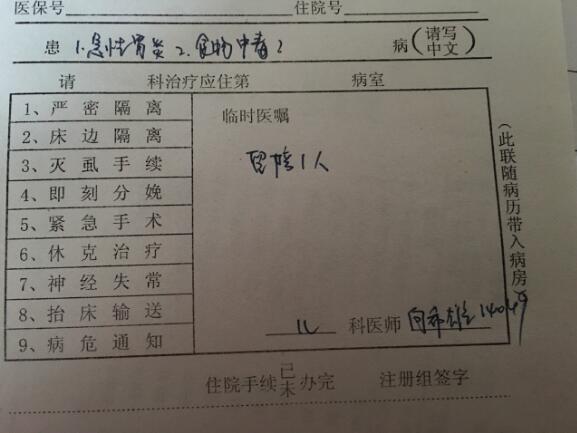 医保号 住院号
患 1.急性胃炎 2.食物中毒? 病(请写中文)
请 科治疗应住第 病室
1、严密隔离
2、床边隔离
3、灭虱手续
4、即刻分娩
5、紧急手术
6、休克治疗
7、神经失常
8、抬床输送
9、病危通知
临时医嘱
留陪1人
科医师
(此联随病历带入病房)
住院手续已未办完 注册组签字